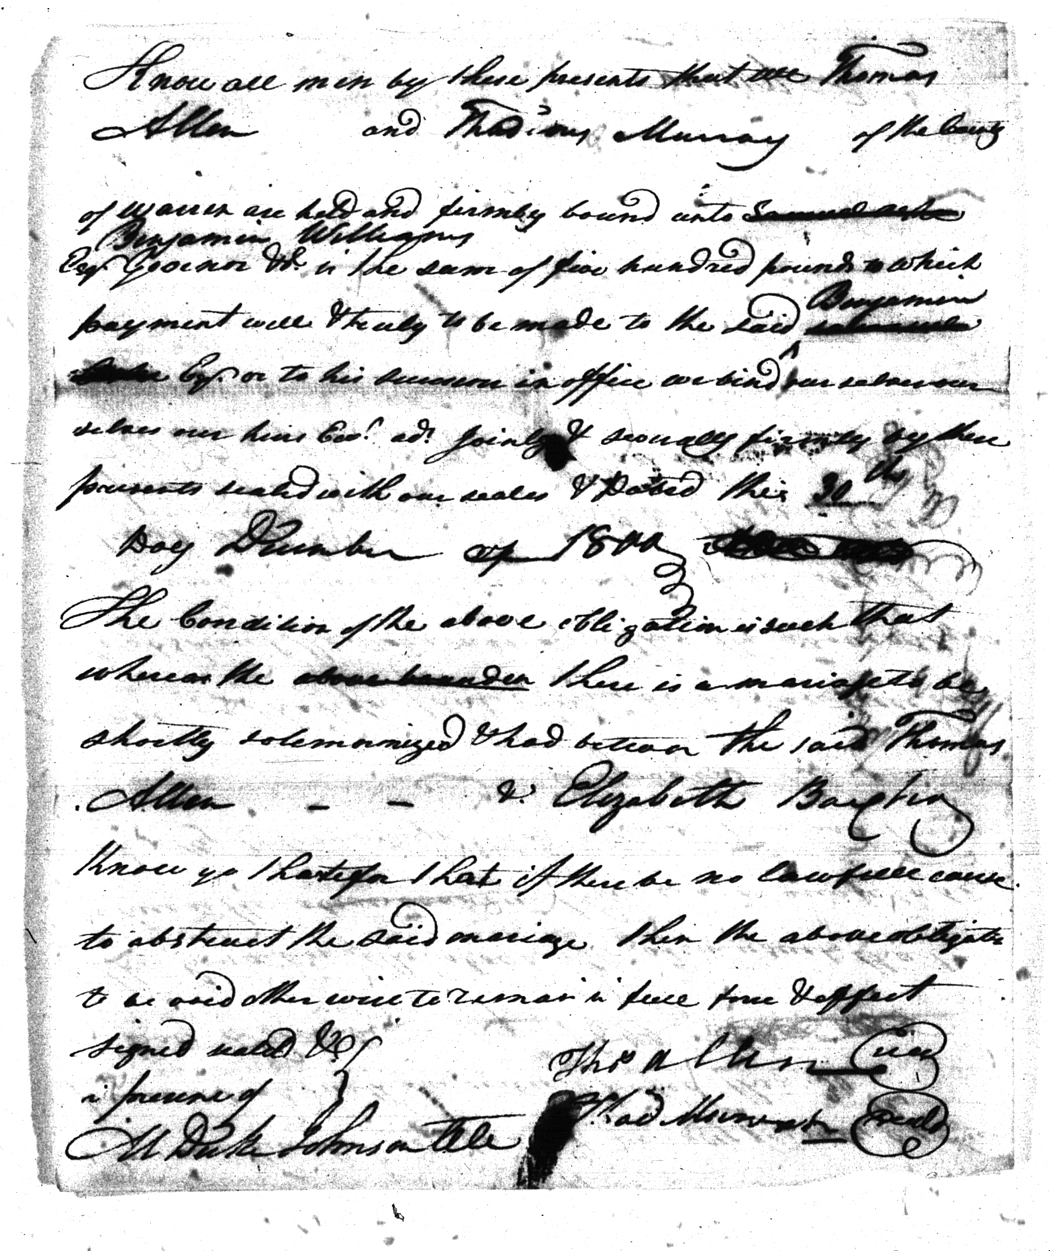 Know all men by these presents that we Thomas
Allen and Thadious Murray of the County
of Warren are held and firmly bound unto Samuel Ashe
Benjamin Williams
Esqr. Govenor &c. in the sum of five hundred pounds to which
payment well & truly to be made to the said Benjamin
Esqr. or to his successor in office we bind our selves our
selves our heirs Exrs. ads. Jointly & severally firmly by these
presents sealed with our seales & Dated this 30th
Day December 1800
The Condition of the above obligation is such that
whereas the above bounden there is a mariage to be
shortly solemmized & had between the said Thomas
Allen - - & Elizabeth
Know ye that if there be no lawfull cause
to abstruct the said mariage then the above obligatn
to be void otherwise to remain in full force & effect
signed sealed &c
in presence of
Tho Allen seal
Thad Murray seal
M Duke Johnson